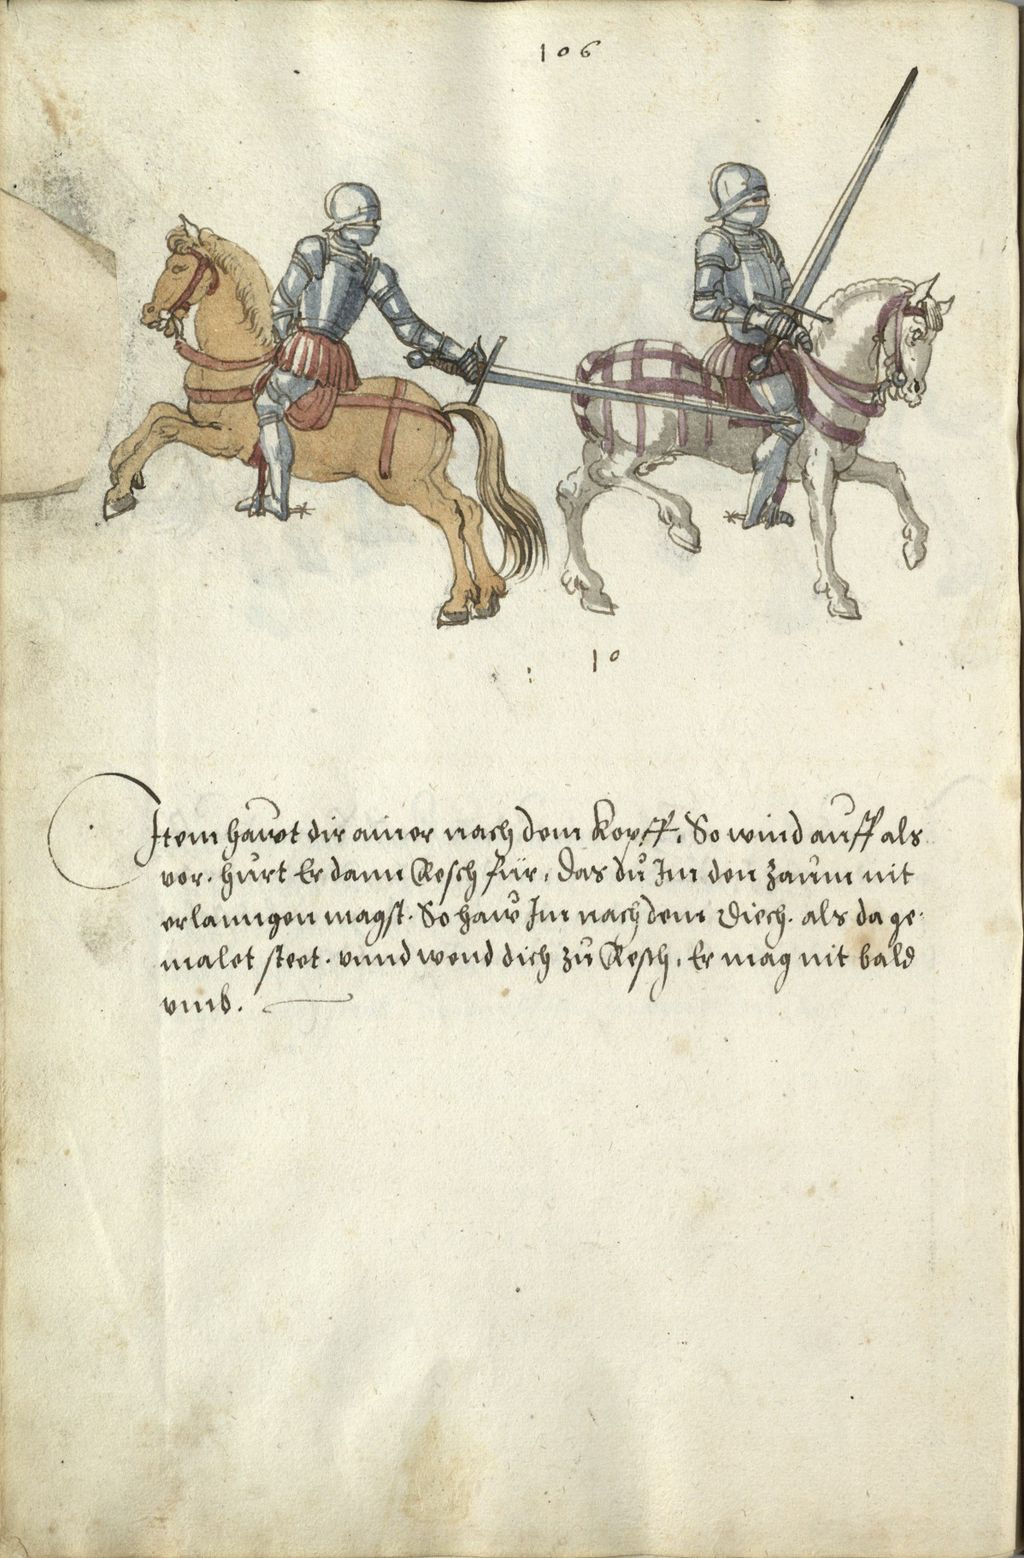 106
10
Item hawt dir ainer nach dem Kopff. So wind auff als
vor. hurt Er dann Resch für, das dü Im den zaum nit
erlanngen magst. So haw Im nach dem Diech. als da ge¬
malet steet. vnnd wend dich zü Resch, Er mag nit bald
vmb.